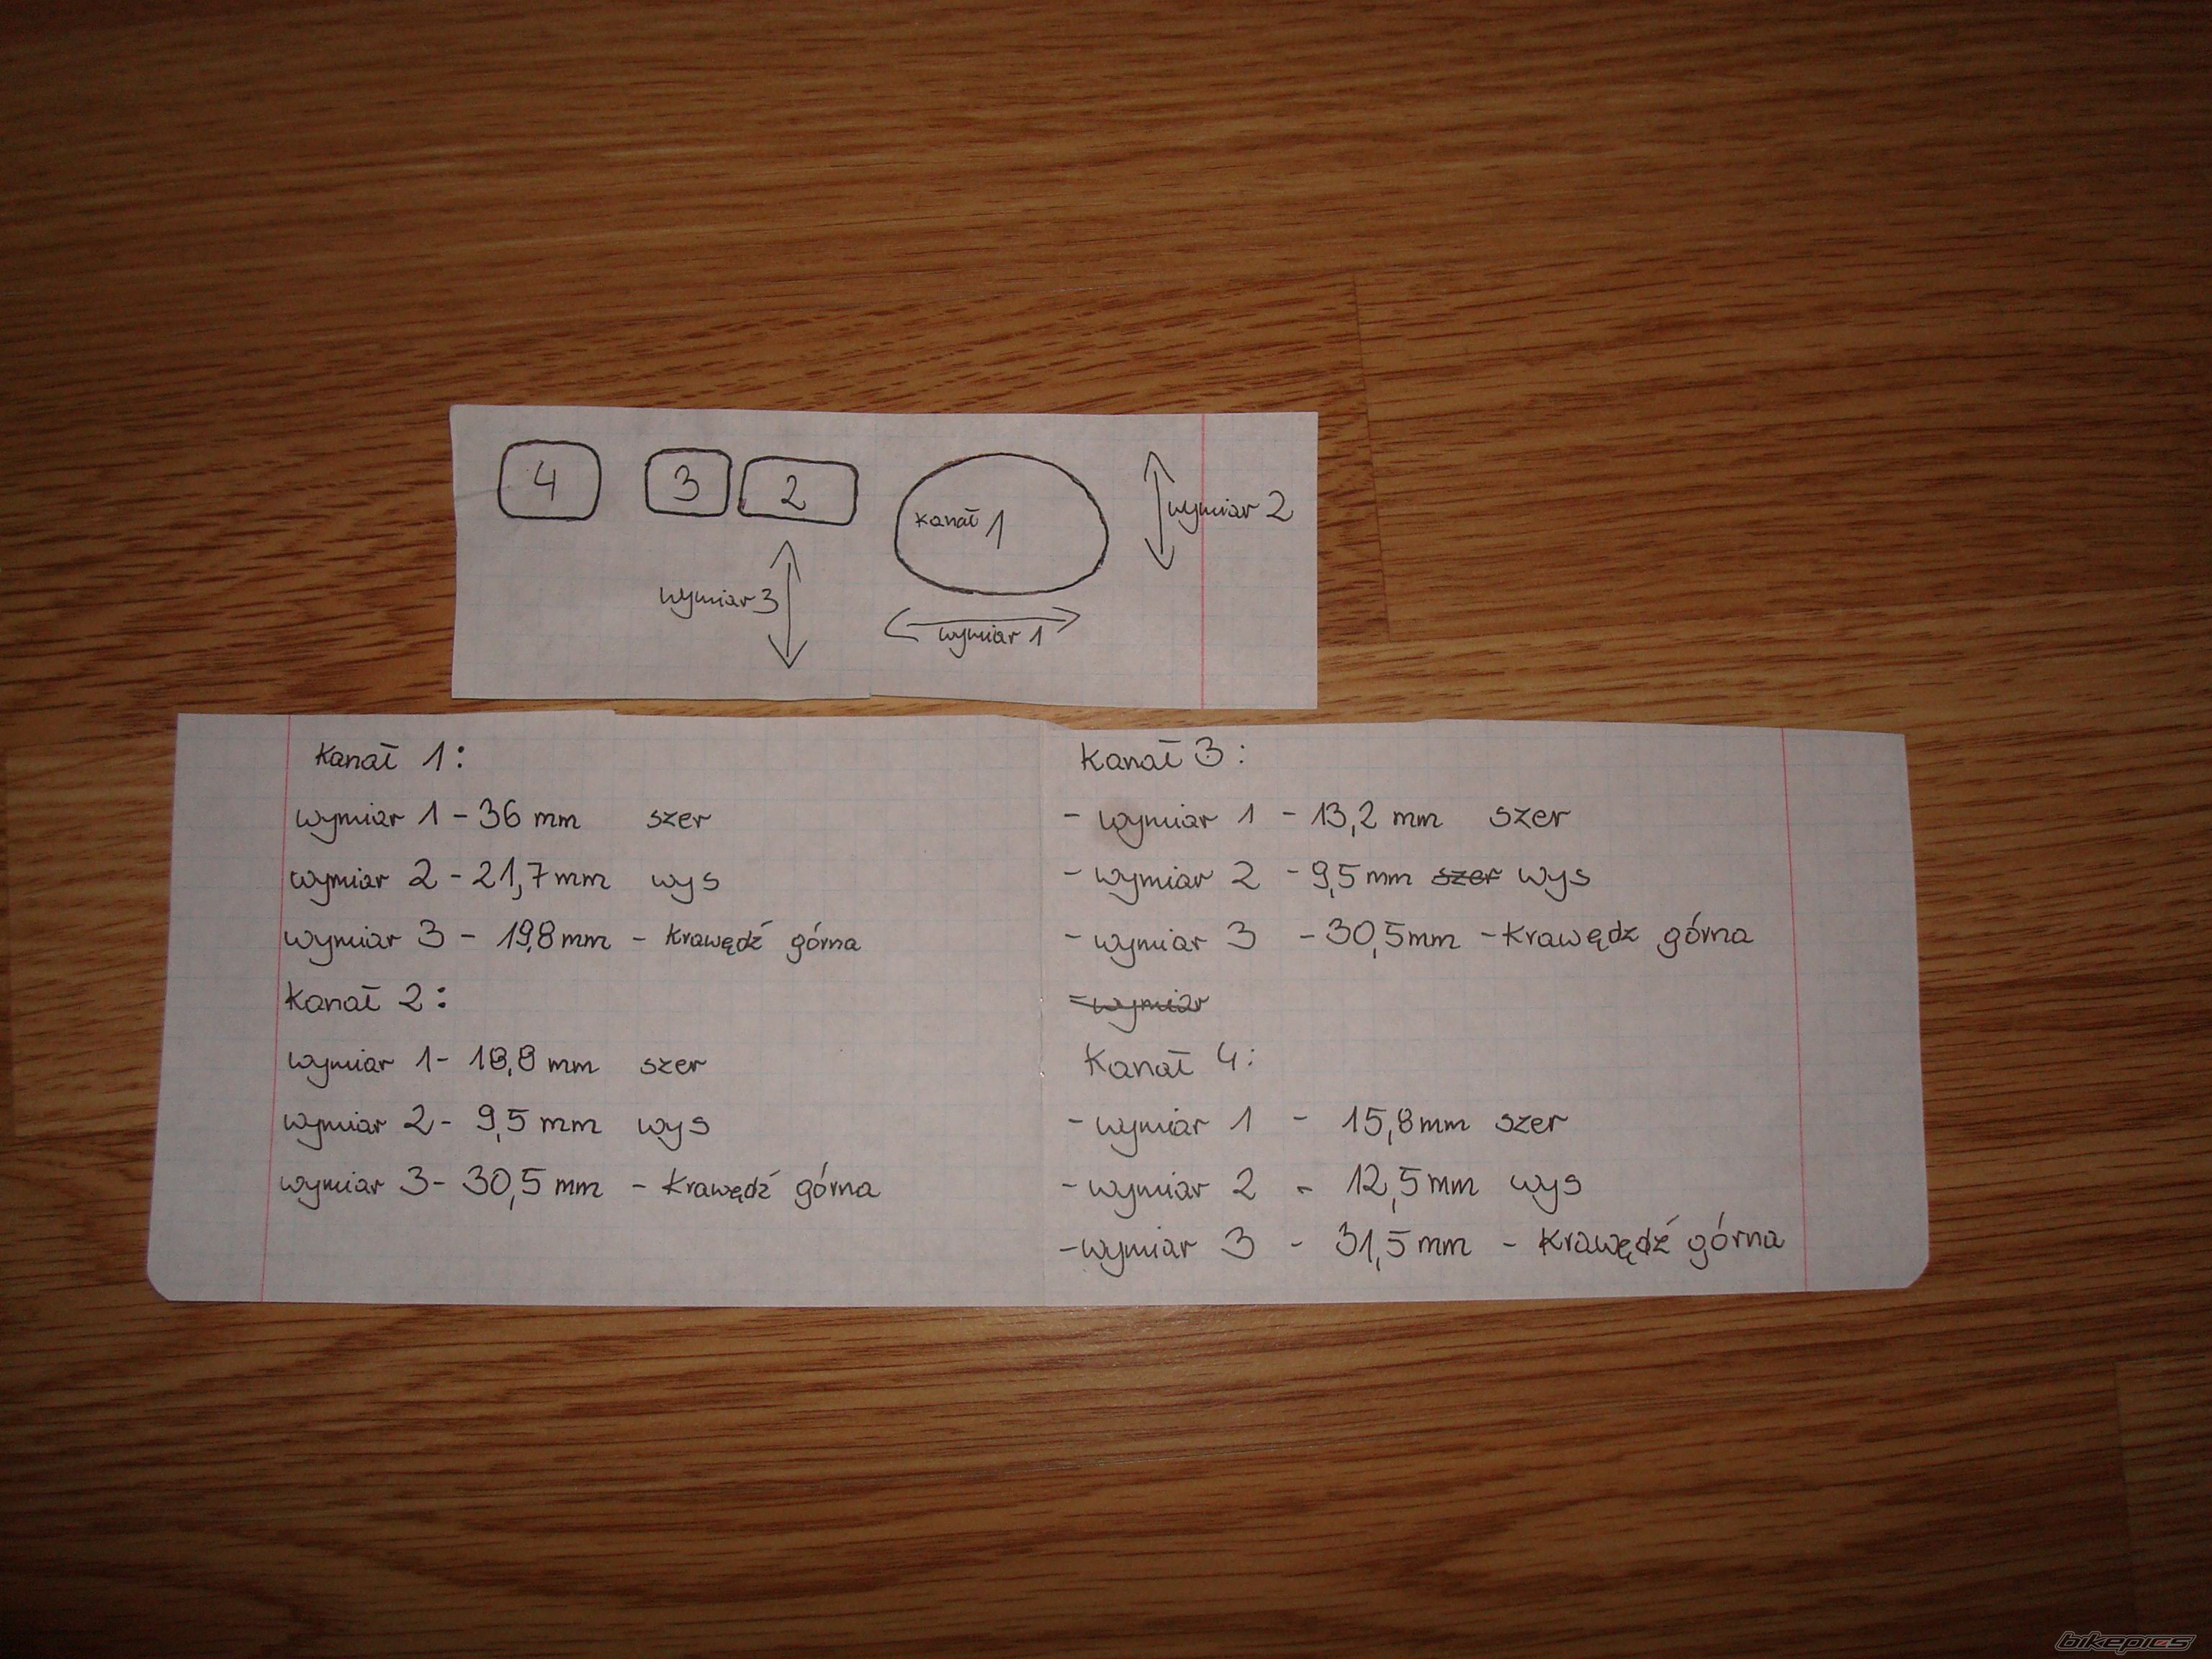 4
3
2
kanał 1
wymiar 2
wymiar 3
wymiar 1
Kanał 1:
wymiar 1 - 36 mm szer
wymiar 2 - 21,7 mm wys
wymiar 3 - 19,8 mm - Krawędź górna
Kanał 2:
wymiar 1 - 18,8 mm szer
wymiar 2 - 9,5 mm wys
wymiar 3 - 30,5 mm - Krawędź górna
Kanał 3:
- wymiar 1 - 13,2 mm szer
- wymiar 2 - 9,5 mm szer wys
- wymiar 3 - 30,5 mm - Krawędz górna
- wymiar
Kanał 4:
- wymiar 1 - 15,8 mm szer
- wymiar 2 - 12,5 mm wys
- wymiar 3 - 31,5 mm - Krawędź górna
bikepics